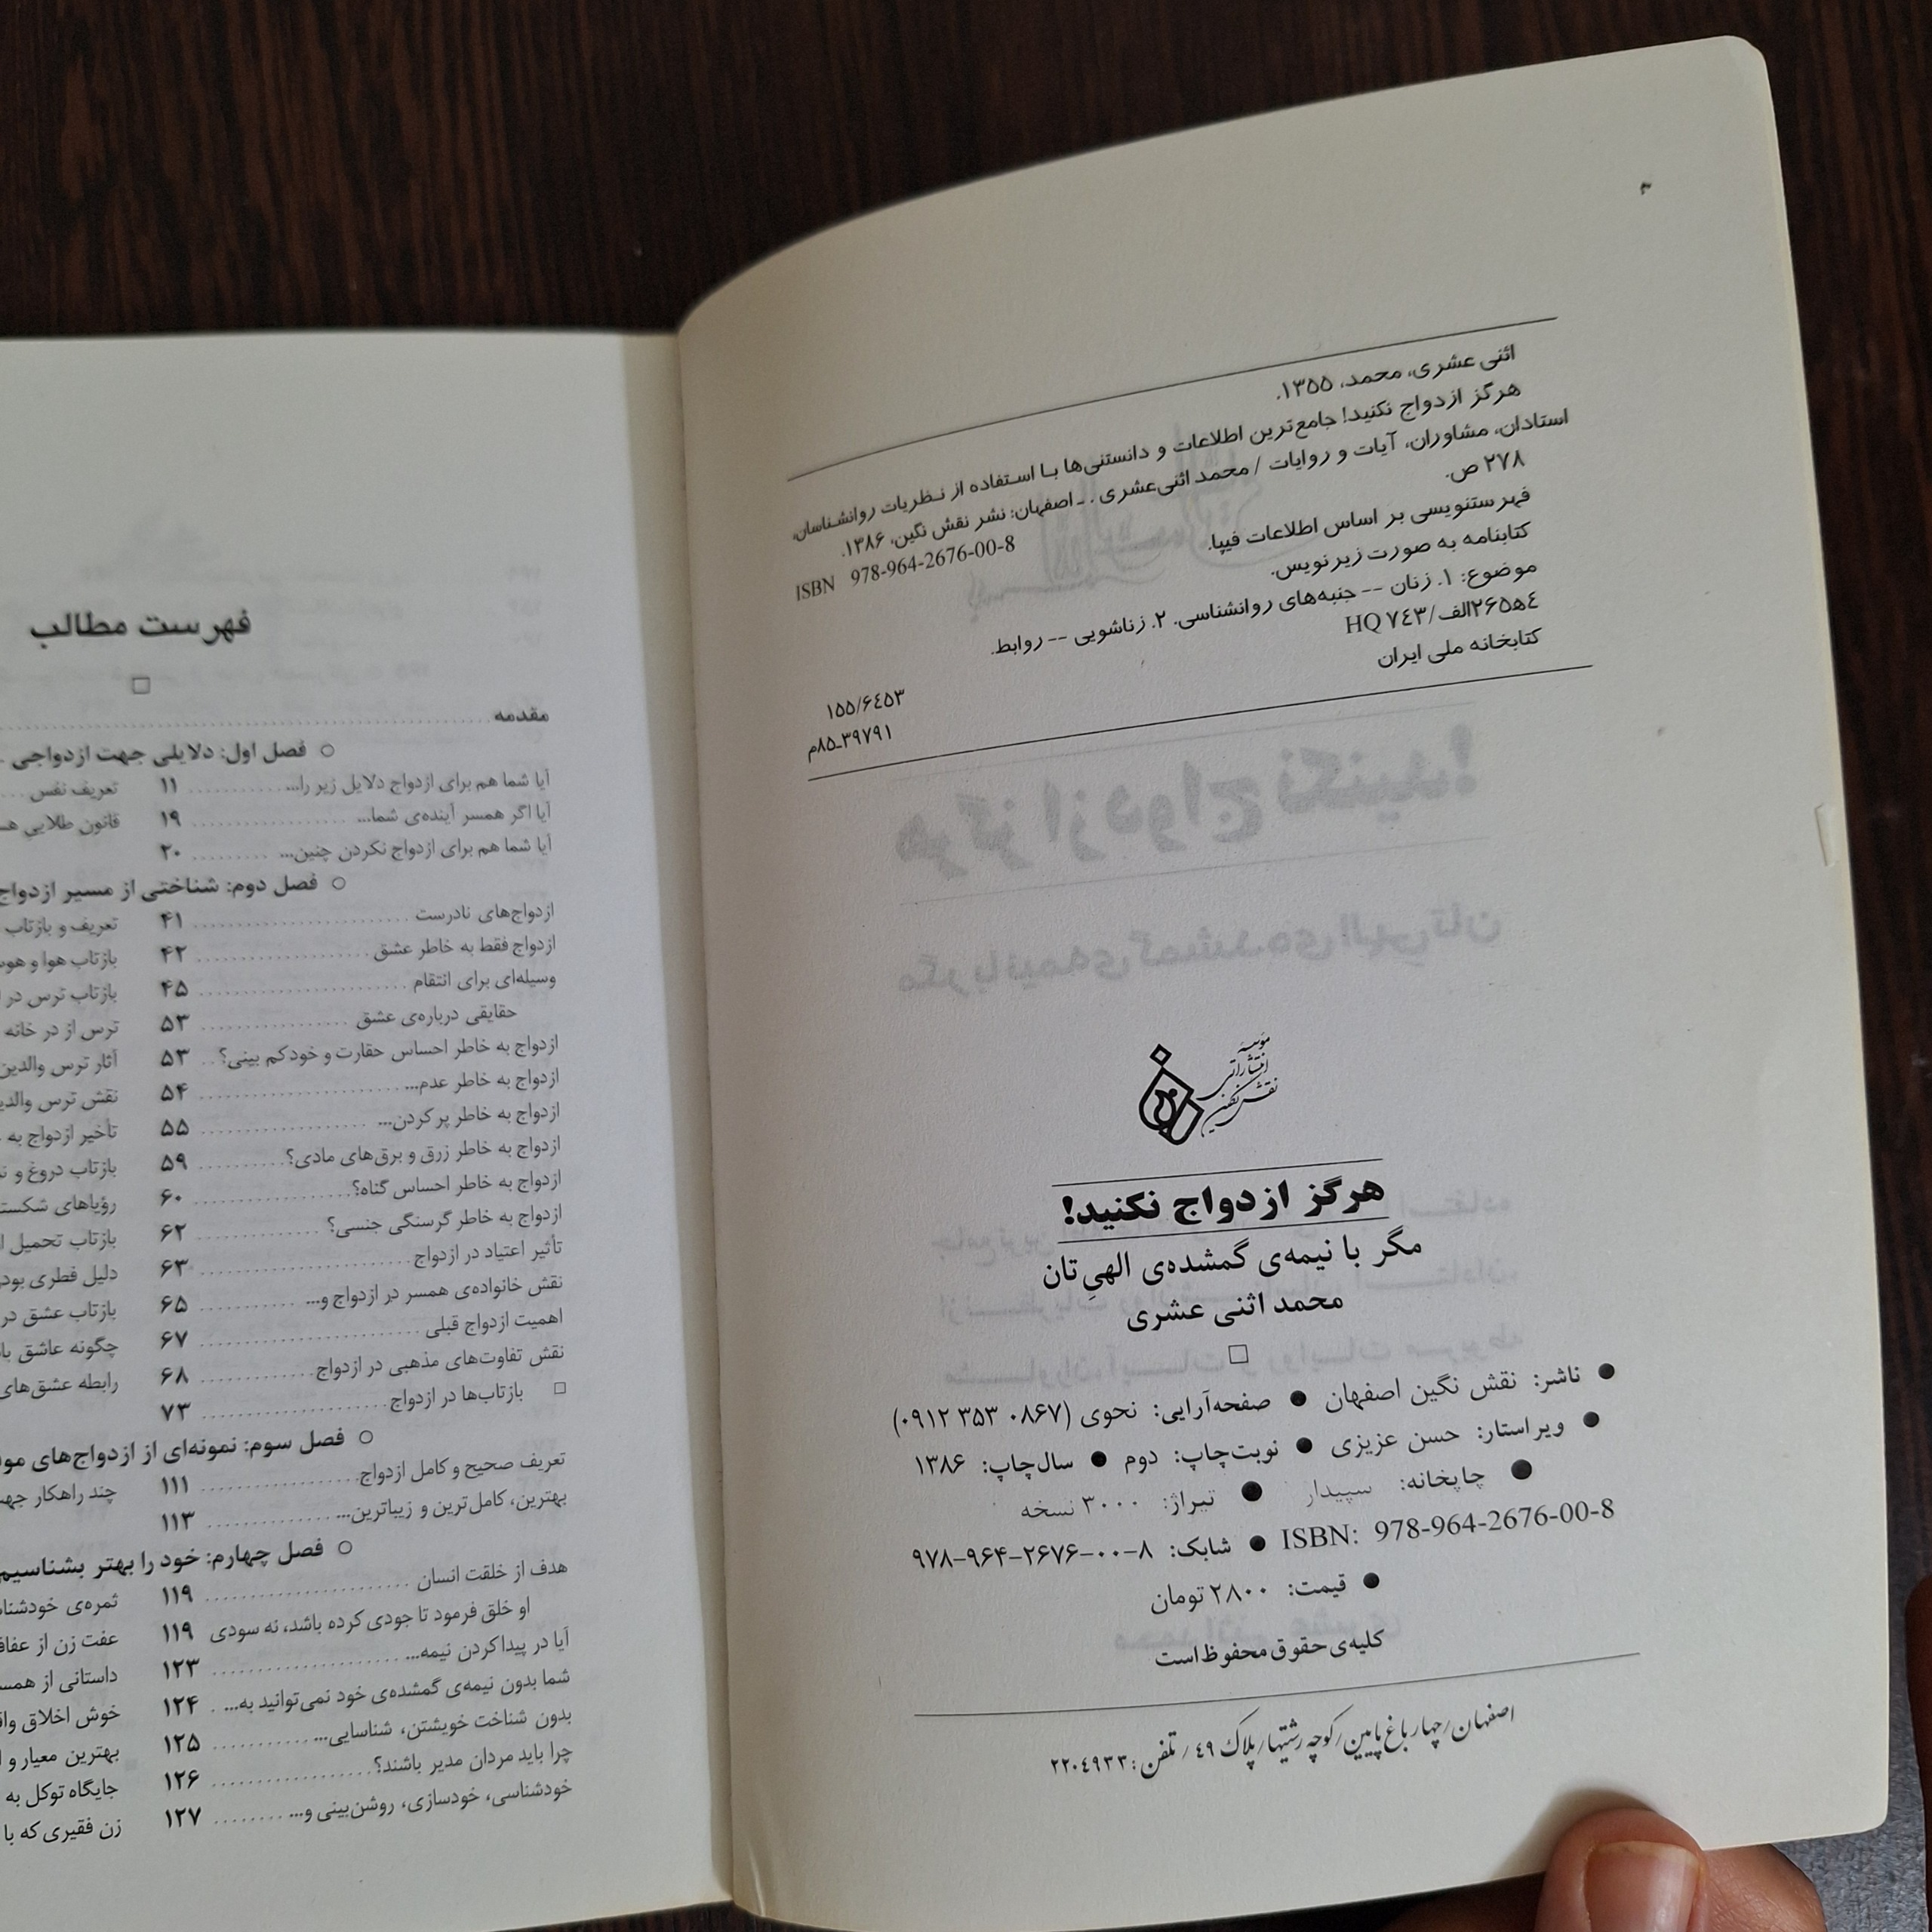 ۳
اثنی عشری، محمد، ۱۳۵۵.
هرگز ازدواج نکنید! جامع‌ترین اطلاعات و دانستنی‌ها با استفاده از نظریات روانشناسان،
استادان، مشاوران، آیات و روایات / محمد اثنی‌عشری . ـ اصفهان: نشر نقش نگین، ۱۳۸۶.
۲۷۸ ص.
ISBN 978-964-2676-00-8
فهرستنویسی بر اساس اطلاعات فیپا.
کتابنامه به صورت زیرنویس.
موضوع: ۱. زنان -- جنبه‌های روانشناسی. ۲. زناشویی -- روابط.
HQ ۷٤۳/الف۲۶۵ه٤
۱۵۵/۶٤۵۳
کتابخانه ملی ایران
۸۵ـ۳۹۷۹۱م
مؤسسه
انتشاراتی
نقش نگین
هرگز ازدواج نکنید!
مگر با نیمه‌ی گمشده‌ی الهیِ‌تان
محمد اثنی عشری
● ناشر: نقش نگین اصفهان ● صفحه‌آرایی: نحوی (۰۸۶۷ ۳۵۳ ۰۹۱۲)
● ویراستار: حسن عزیزی ● نوبت‌چاپ: دوم ● سال‌چاپ: ۱۳۸۶
● چاپخانه: سپیدار ● تیراژ: ۳۰۰۰ نسخه
ISBN: 978-964-2676-00-8 ● شابک: ۸-۰۰-۲۶۷۶-۹۶۴-۹۷۸
● قیمت: ۲۸۰۰ تومان
کلیه‌ی حقوق محفوظ است
اصفهان/چهارباغ پایین/کوچه رشتیها/پلاک ٤۹/تلفن: ۲۲۰٤۹۳۳
فهرست مطالب
مقدمه
○ فصل اول: دلایلی جهت ازدواجی
آیا شما هم برای ازدواج دلایل زیر را... ۱۱ تعریف نفس
آیا اگر همسر آینده‌ی شما... ۱۹ قانون طلایی
آیا شما هم برای ازدواج نکردن چنین... ۲۰
○ فصل دوم: شناختی از مسیر ازدواج
ازدواج‌های نادرست ۴۱ تعریف و بازتاب
ازدواج فقط به خاطر عشق ۴۲ بازتاب هوا و
وسیله‌ای برای انتقام ۴۵ بازتاب ترس در
حقایقی درباره‌ی عشق ۵۳ ترس از در خانه
ازدواج به خاطر احساس حقارت و خودکم بینی؟ ۵۳ آثار ترس والدین
ازدواج به خاطر عدم... ۵۴ نقش ترس
ازدواج به خاطر پر کردن... ۵۵ تأخیر ازدواج به
ازدواج به خاطر زرق و برق‌های مادی؟ ۵۹ بازتاب دروغ و
ازدواج به خاطر احساس گناه؟ ۶۰ رؤیاهای
ازدواج به خاطر گرسنگی جنسی؟ ۶۲ بازتاب تحمیل
تأثیر اعتیاد در ازدواج ۶۳ دلیل فطری
نقش خانواده‌ی همسر در ازدواج و... ۶۵ بازتاب عشق در
اهمیت ازدواج قبلی ۶۷ چگونه عاشق
نقش تفاوت‌های مذهبی در ازدواج ۶۸ رابطه عشق‌های
□ بازتاب‌ها در ازدواج ۷۳
○ فصل سوم: نمونه‌ای از ازدواج‌های
تعریف صحیح و کامل ازدواج ۱۱۱ چند راهکار
بهترین، کامل‌ترین و زیباترین... ۱۱۳
○ فصل چهارم: خود را بهتر بشناسیم
هدف از خلقت انسان ۱۱۹ ثمره‌ی
او خلق فرمود تا جودی کرده باشد، نه سودی ۱۱۹ عفت زن از
آیا در پیدا کردن نیمه... ۱۲۳ داستانی از
شما بدون نیمه‌ی گمشده‌ی خود نمی‌توانید به... ۱۲۴ خوش اخلاق
بدون شناخت خویشتن، شناسایی... ۱۲۵ بهترین معیار و
چرا باید مردان مدیر باشند؟ ۱۲۶ جایگاه توکل به
خودشناسی، خودسازی، روشن‌بینی و... ۱۲۷ زن فقیری که با